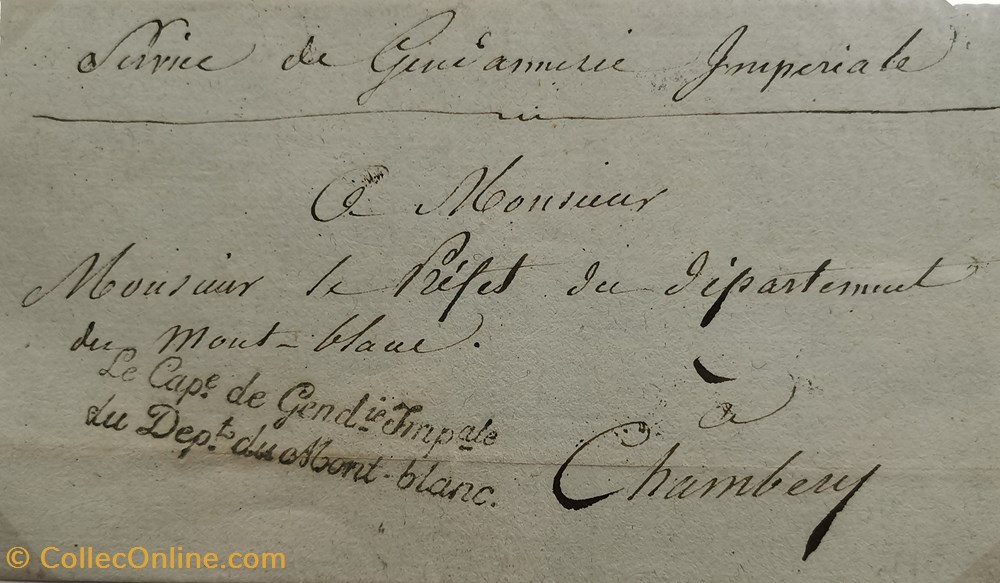 Service de Gendarmerie Imperiale
A Monsieur
Monsieur le Préfet du département
du Mont-blanc.
Le Cape. de Gendie. Impale
du Dept. du Mont-blanc.
à
Chambery
© CollecOnline.com